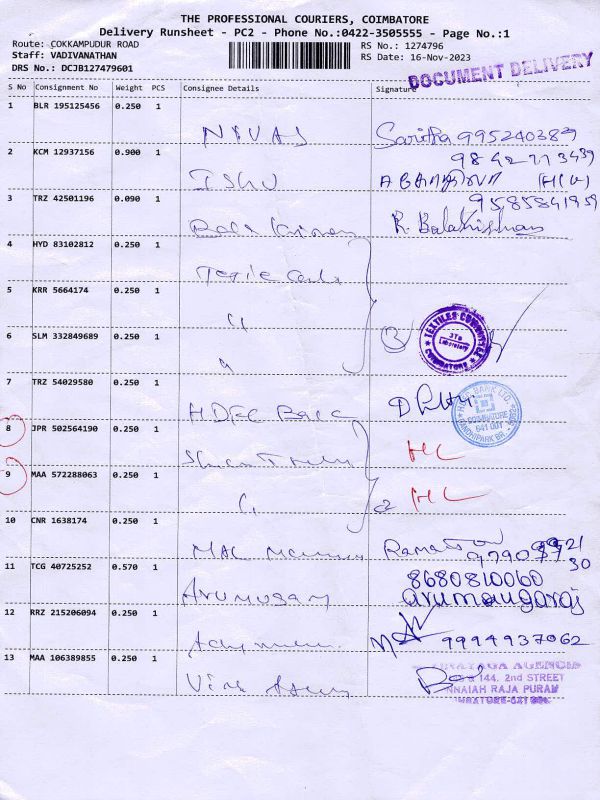 THE PROFESSIONAL COURIERS, COIMBATORE
Delivery Runsheet - PC2 - Phone No.:0422-3505555 - Page No.:1
Route: COKKAMPUDUR ROAD
Staff: VADIVANATHAN
DRS No.: DCJB127479601
RS No.: 1274796
RS Date: 16-Nov-2023
DOCUMENT DELIVERY
S No Consignment No Weight PCS Consignee Details Signature
1 BLR 195125456 0.250 1 NIVAS Saritha 995240389
9842773439
2 KCM 12937156 0.900 1 ISHU
9585841959
3 TRZ 42501196 0.090 1 Bala Krishnan R. Balakrishnan
4 HYD 83102812 0.250 1 Textile
5 KRR 5664174 0.250 1 "
6 SLM 332849689 0.250 1 " 3
TEXTILES COMMITTEE
Laboratory
COIMBATORE
7 TRZ 54029580 0.250 1 HDFC Bank
BANK LTD.
COIMBATORE
641 001
GANDHIPARK BR.
8 JPR 502564190 0.250 1
9 MAA 572288063 0.250 1 " 2
10 CNR 1638174 0.250 1 MAC
11 TCG 40725252 0.570 1 Arumugam 8680810060
arumougaraj
12 RRZ 215206094 0.250 1 9994937062
13 MAA 106389855 0.250 1
VINAYAGA AGENCIES
144, 2nd STREET
RAJA PURAM